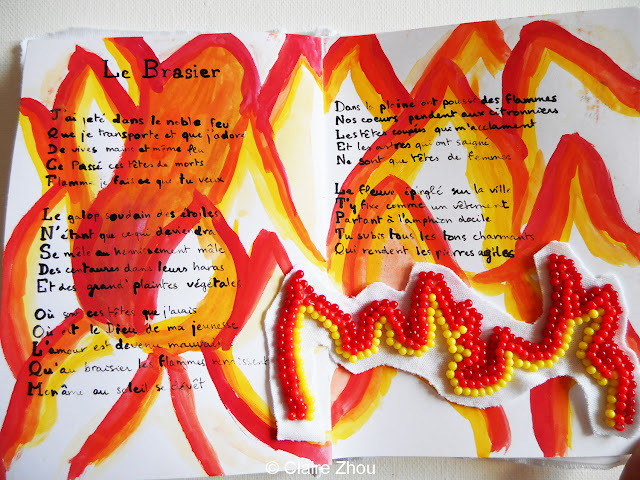 Le Brasier
J'ai jeté dans le noble feu
Que je transporte et que j'adore
De vives mains et même feu
Ce Passé ces têtes de morts
Flamme je fais ce que tu veux
Le galop soudain des étoiles
N'étant que ce qui deviendra
Se mêle au hennissement mâle
Des centaures dans leurs haras
Et des grand' plaintes végétales
Où sont ces têtes que j'avais
Où est le Dieu de ma jeunesse
L'amour est devenu mauvais
Qu'au braisier les flammes renaissent
Mon âme au soleil se dévêt
Dans la plaine ont poussé des flammes
Nos coeurs pendent aux citronniers
Les têtes coupées qui m'acclament
Et les astres qui ont saigné
Ne sont que têtes de femmes
Le fleuve épinglé sur la ville
T'y fixe comme un vêtement
Partant à l'amphion docile
Tu subis tous les tons charmants
Qui rendent les pierres agiles
© Claire Zhou